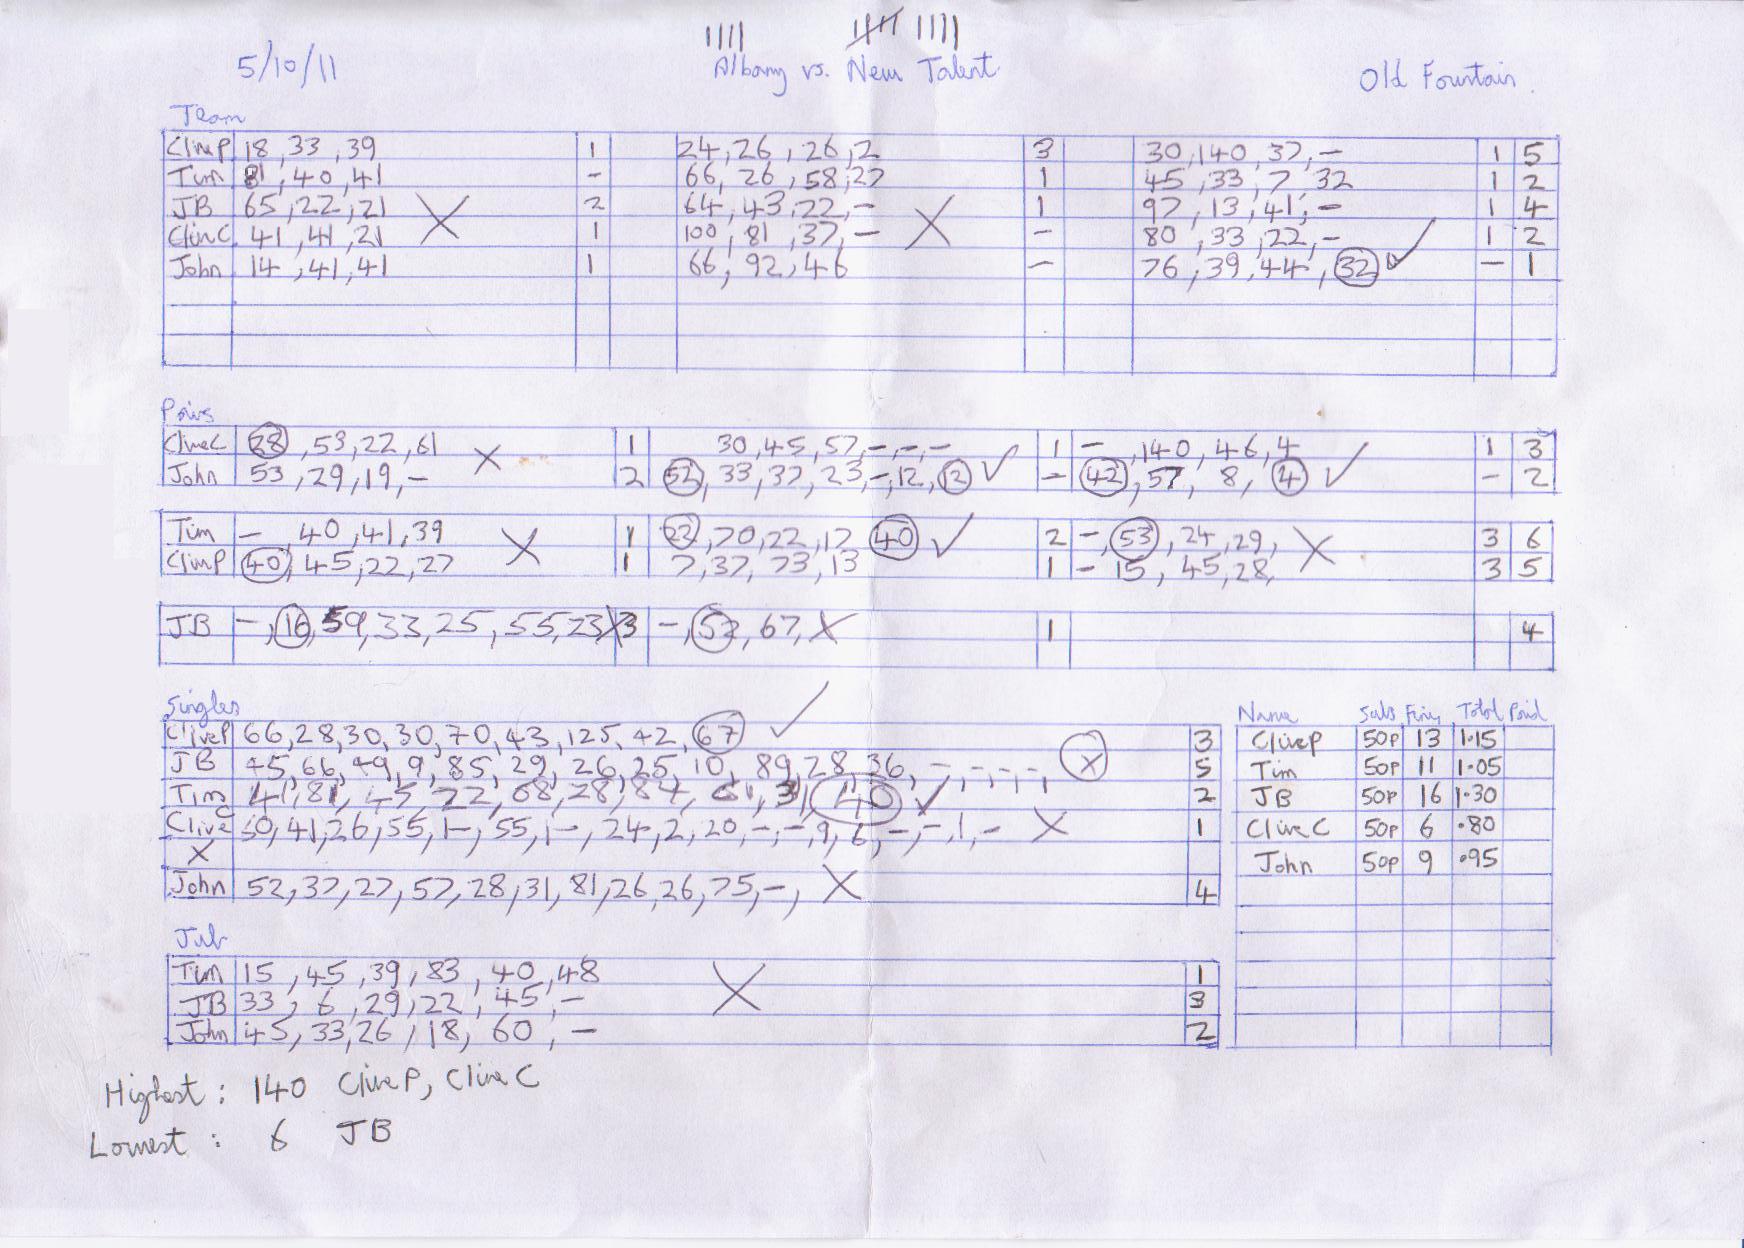 5/10/11
Albany vs. New Talent
Old Fountain.
Team
CliveP 18,33,39 1 24,26,26,2 3 30,140,37,- 1 5
Tim 81,40,41 - 66,26,58,27 1 45,33,7,32 1 2
JB 65,22,21 X 2 64,43,22,- X 1 97,13,41,- 1 4
CliveC 41,41,21 1 100,81,37,- - 80,33,22,- 1 2
John 14,41,41 1 66,92,46 - 76,39,44,32 ✓ - 1
Pairs
CliveC 28,53,22,61 X 1 30,45,57,-,-,- 1 -,140,46,4 1 3
John 53,29,19,- 2 52,33,37,23,-,12,12 ✓ - 42,57,8,4 ✓ - 2
Tim -,40,41,39 X 1 22,70,22,17 40 ✓ 2 -,53,24,29, X 3 6
CliveP 40,45,22,27 1 7,37,73,13 1 - 15,45,28, 3 5
JB -,16,59,33,25,55,23 X 3 -,52,67, X 1 4
Singles
CliveP 66,28,30,30,70,43,125,42,67 ✓ 3
JB 45,66,49,9,85,29,26,25,10,89,28,36,-,-,-,-, X 5
Tim 41,81,45,22,68,28,84,61,3, 40 ✓ 2
Clive C 60,41,26,55,1-,55,1-,24,2,20,-,-,9,6,-,-,1,- X 1
X
John 52,37,27,57,28,31,81,26,26,75,-, X 4
Name Subs Fines Total Paid
CliveP 50P 13 1.15
Tim 50P 11 1.05
JB 50P 16 1.30
CliveC 50P 6 .80
John 50P 9 .95
Tim 15,45,39,83,40,48 1
JB 33,6,29,22,45,- X 3
John 45,33,26,18,60,- 2
Highest: 140 CliveP, CliveC
Lowest: 6 JB